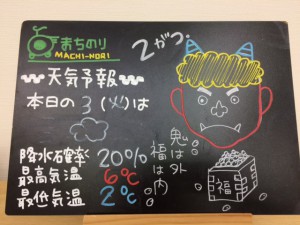 まちのり
MACHI-NORI
2がつ。
天気予報
本日の3(火)は
降水確率 20%
最高気温 6℃
最低気温 2℃
鬼は外
福は内
福